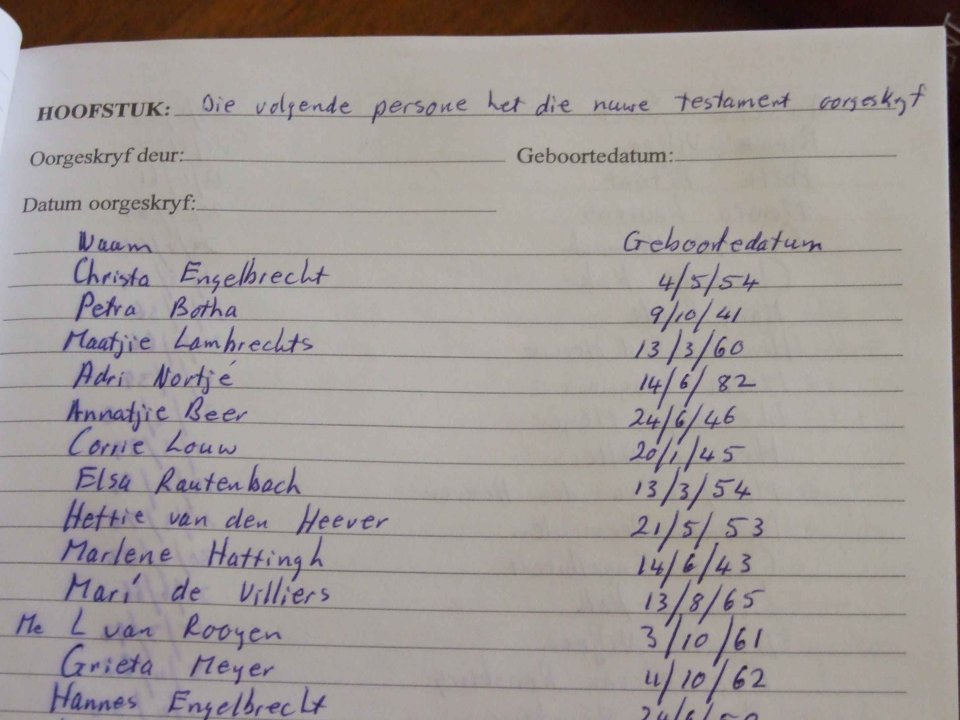 HOOFSTUK: Die volgende persone het die nuwe testament oorgeskryf
Oorgeskryf deur: Geboortedatum:
Datum oorgeskryf:
Naam Geboortedatum
Christa Engelbrecht 4/5/54
Petra Botha 9/10/41
Maatjie Lambrechts 13/3/60
Adri Nortjé 14/6/82
Annatjie Beer 24/6/46
Corrie Louw 20/1/45
Elsa Rautenbach 13/3/54
Hettie van den Heever 21/5/53
Marlene Hattingh 14/6/43
Marí de Villiers 13/8/65
Me L van Rooyen 3/10/61
Grieta Meyer 4/10/62
Hannes Engelbrecht